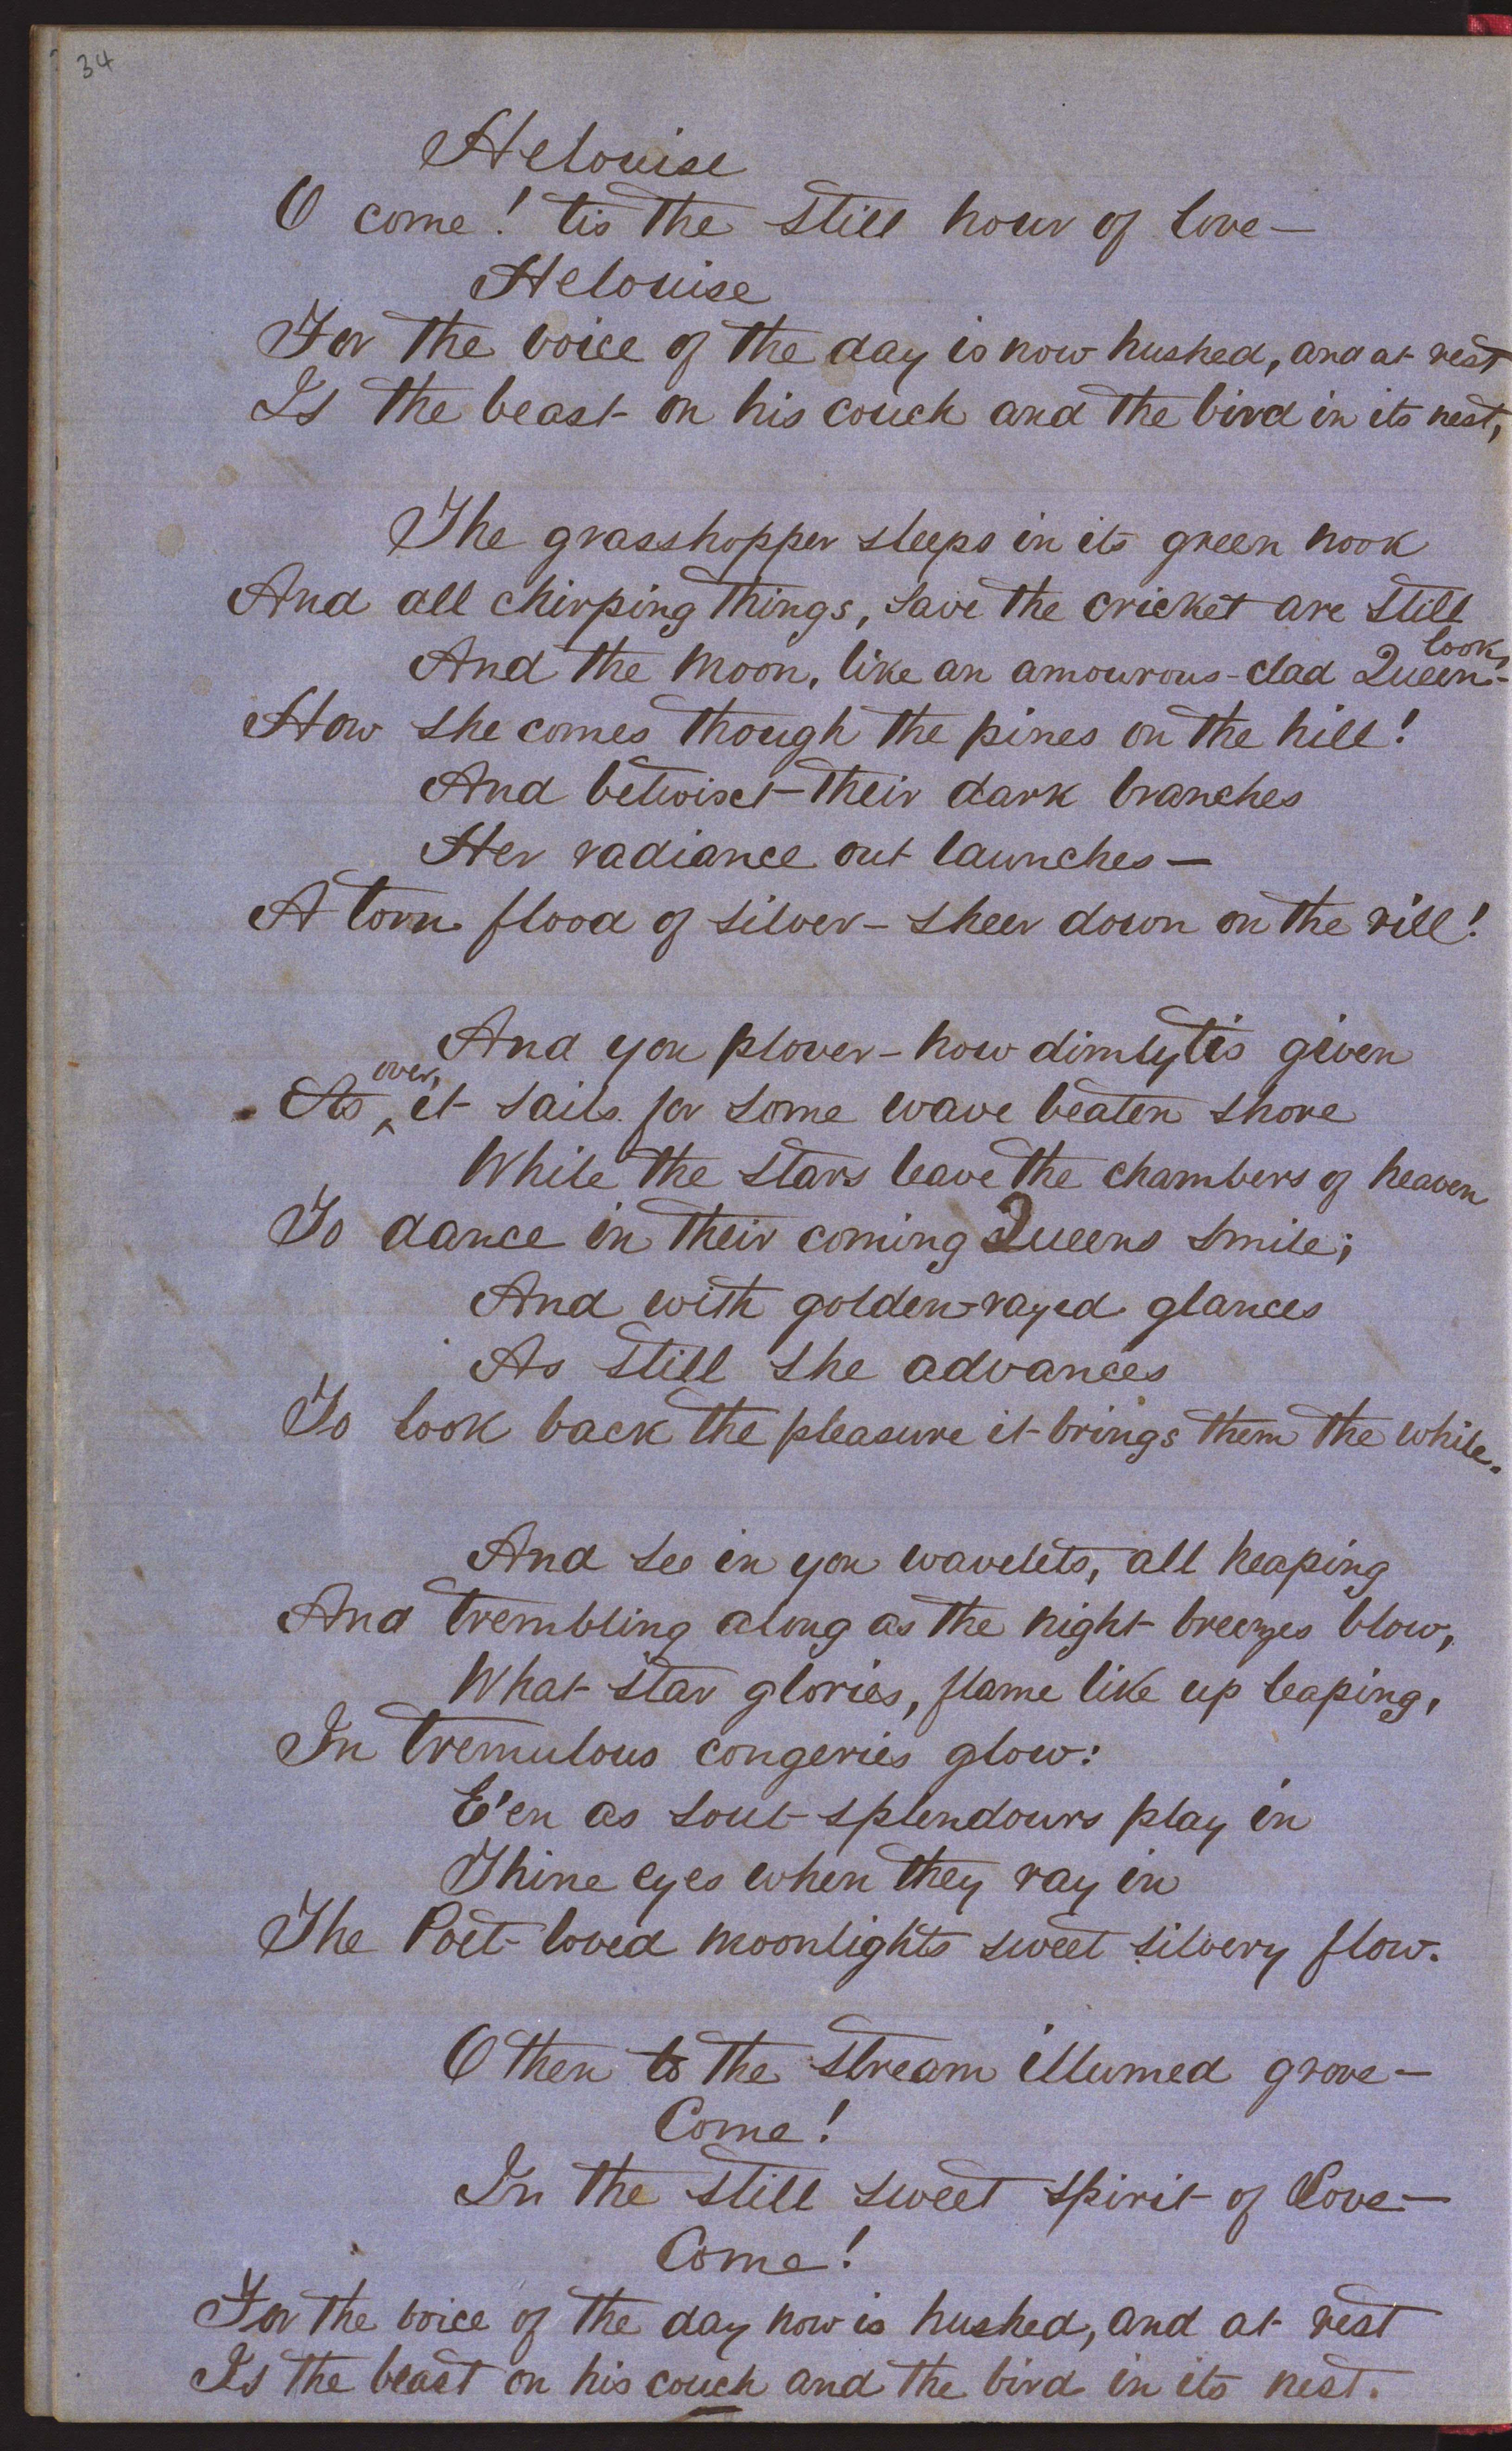 34
Helouise
O come! tis the still hour of love —
Helouise
For the voice of the day is now hushed, and at rest
Is the beast on his couch and the bird in its nest,
The grasshopper sleeps in its green nook
And all chirping things, save the cricket are still
And the Moon, like an amourous-clad Queen-look,
How she comes though the pines on the hill!
And betwixt their dark branches
Her radiance out launches —
A torn flood of silver - sheer down on the rill!
And yon plover - how dimly tis given
As over, it sails for some wave beaten shore
While the stars leave the chambers of heaven
To dance in their coming Queens smile;
And with golden-rayed glances
As still she advances
To look back the pleasure it brings them the while.
And see in yon wavelets, all heaping
And trembling along as the night breezes blow,
What star glories, flame like up leaping,
In tremulous congeries glow:
E'en as soul-splendours play in
Thine eyes when they ray in
The Poet-loved moonlights sweet silvery flow.
O then to the stream illumed grove —
Come!
In the still sweet spirit of Love —
Come!
For the voice of the day now is hushed, and at rest
Is the beast on his couch and the bird in its nest.